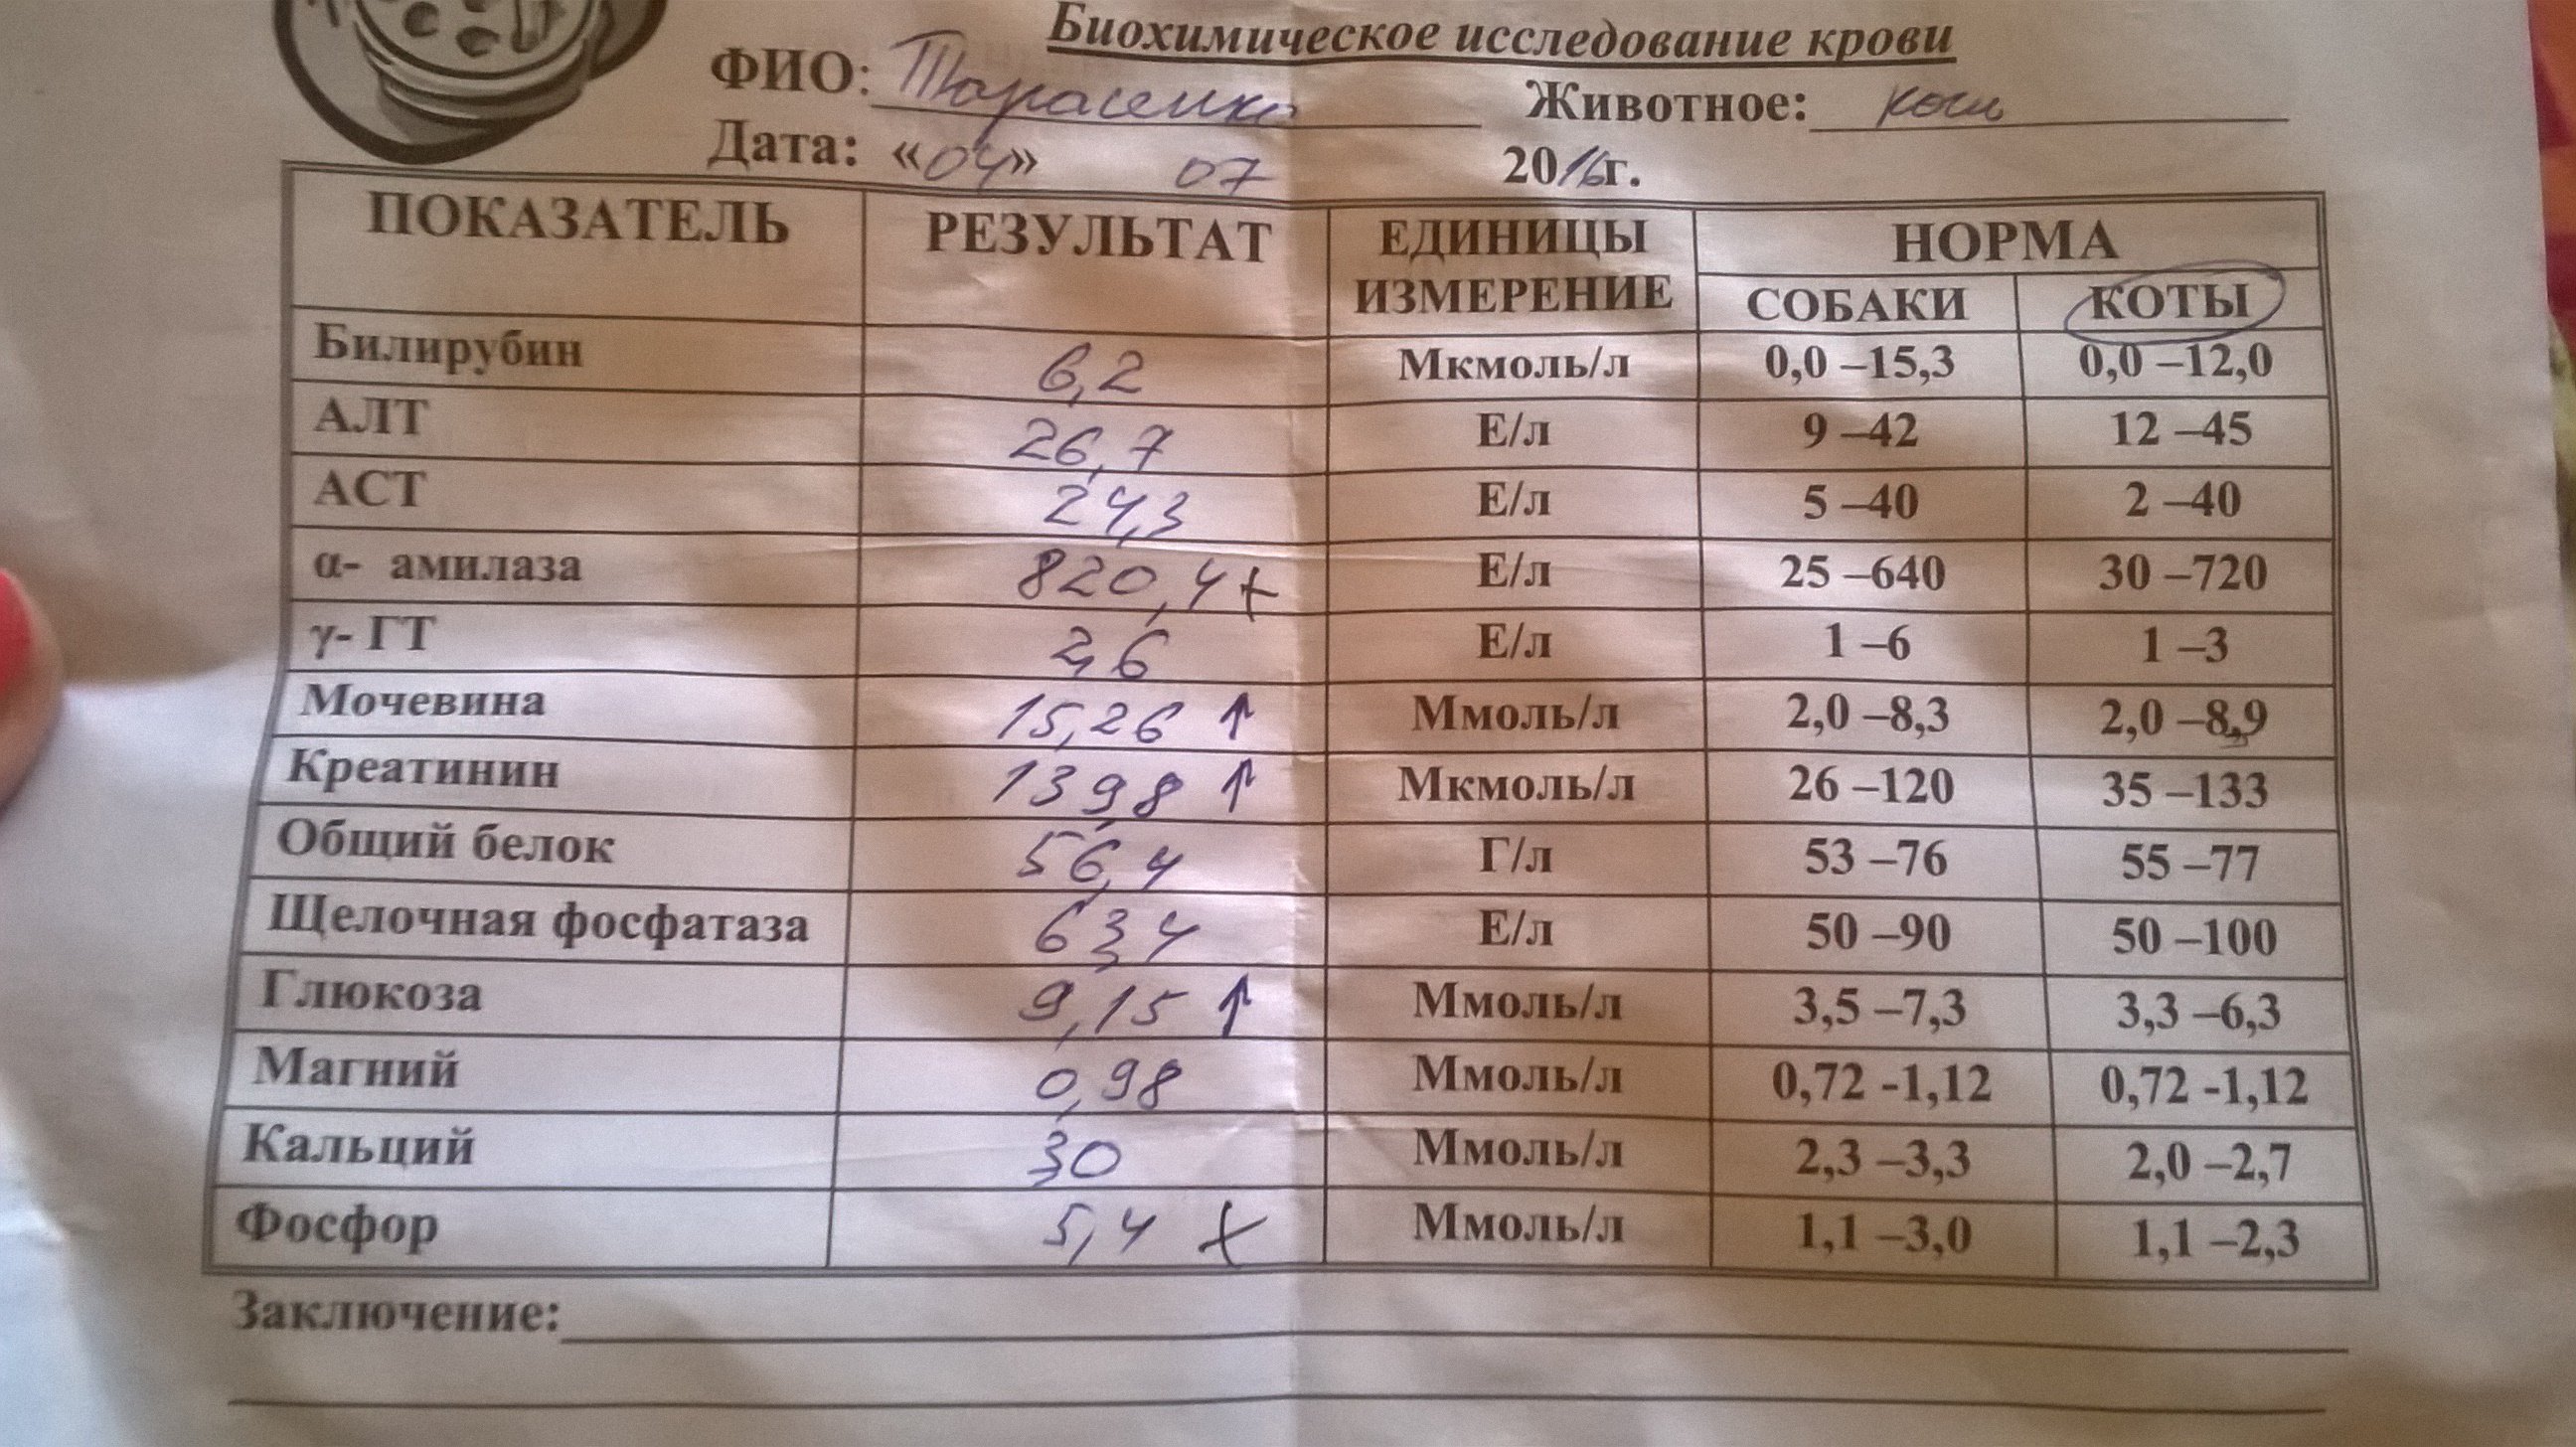 Биохимическое исследование крови
ФИО: Тарасенко Животное: кот
Дата: «04» 07 2016г.
ПОКАЗАТЕЛЬ РЕЗУЛЬТАТ ЕДИНИЦЫ ИЗМЕРЕНИЕ НОРМА
СОБАКИ КОТЫ
Билирубин 6,2 Мкмоль/л 0,0 –15,3 0,0 –12,0
АЛТ 26,7 Е/л 9 –42 12 –45
АСТ 24,3 Е/л 5 –40 2 –40
α- амилаза 820,4 + Е/л 25 –640 30 –720
γ- ГТ 2,6 Е/л 1 –6 1 –3
Мочевина 15,26 ↑ Ммоль/л 2,0 –8,3 2,0 –8,9
Креатинин 139,8 ↑ Мкмоль/л 26 –120 35 –133
Общий белок 56,4 Г/л 53 –76 55 –77
Щелочная фосфатаза 63,4 Е/л 50 –90 50 –100
Глюкоза 9,15 ↑ Ммоль/л 3,5 –7,3 3,3 –6,3
Магний 0,98 Ммоль/л 0,72 -1,12 0,72 -1,12
Кальций 3,0 Ммоль/л 2,3 –3,3 2,0 –2,7
Фосфор 5,4 + Ммоль/л 1,1 –3,0 1,1 –2,3
Заключение: